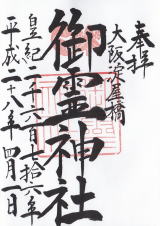 奉拝
大阪淀屋橋
御霊神社
皇紀二千六百七拾六年
平成二十八年四月一日